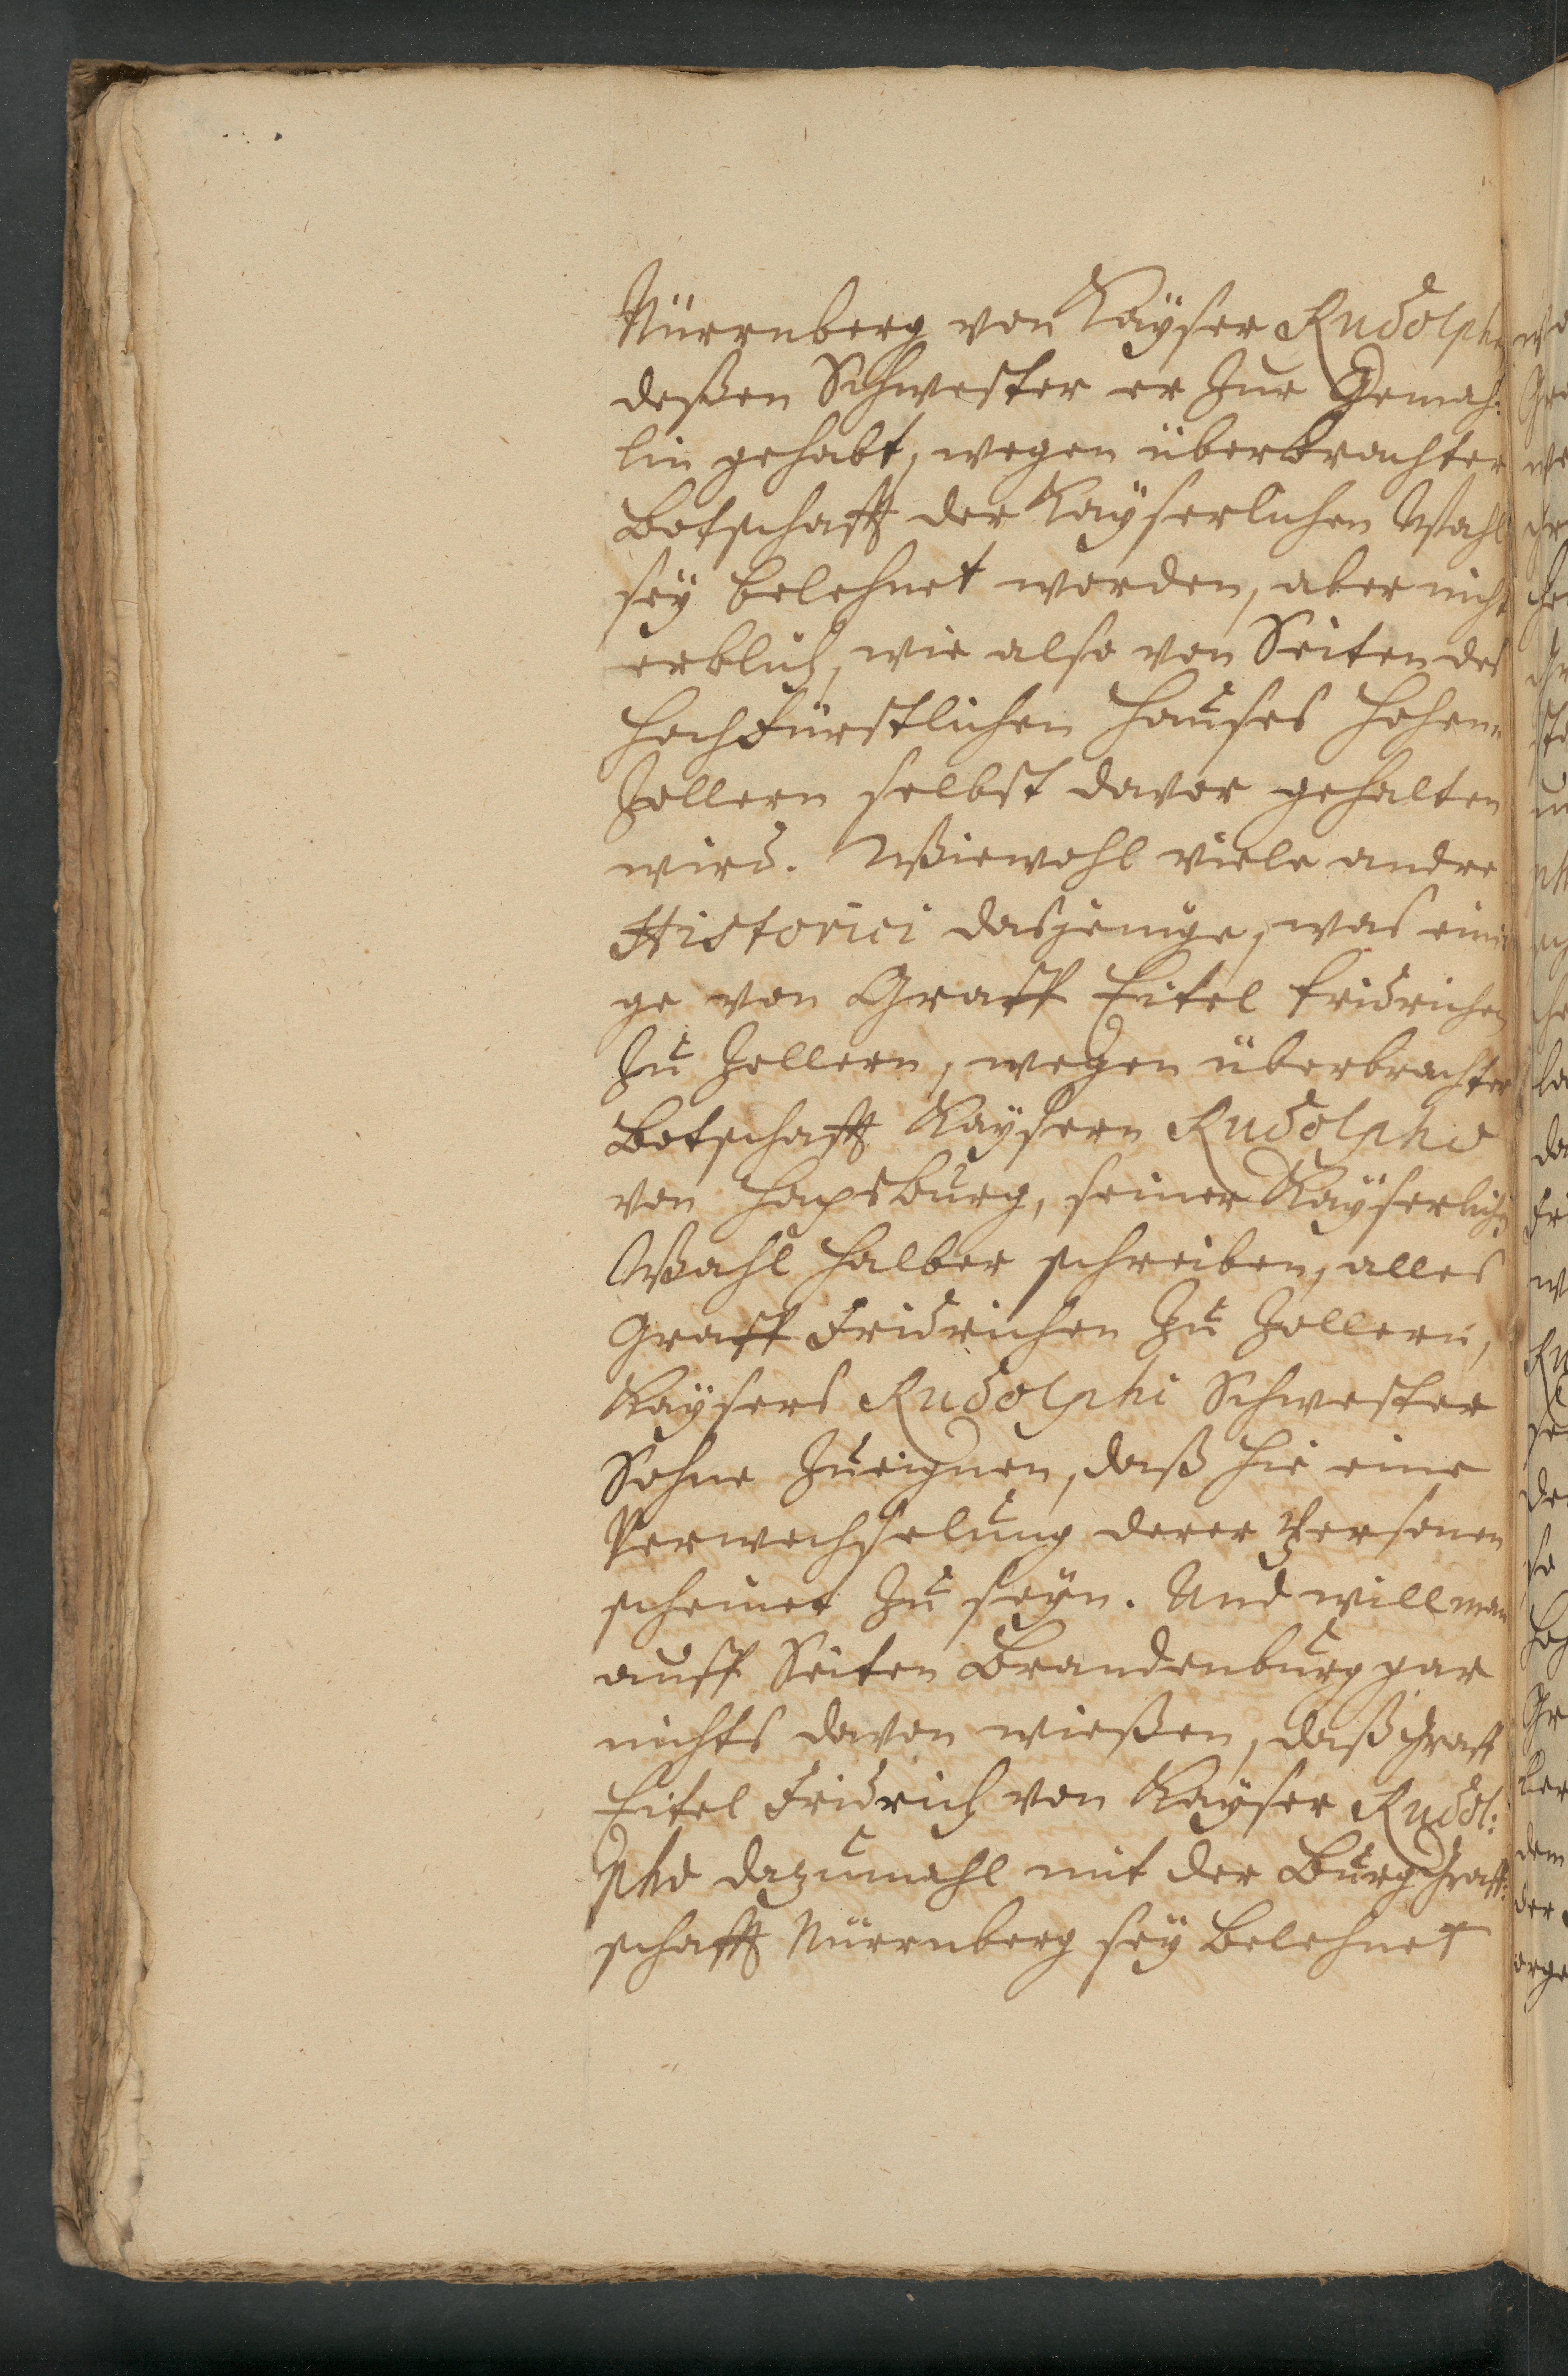 Nürrnberg von Kaÿser Rudolpho
deßen Schwester er Zur Gemah:
lin gehabt, wegen überbrachter
Botschafft der Kaÿserlichen Wahl
seÿ belehnet worden, aber nicht
erblich, wie also von Seiten des
Hochfürstlichen Hauses Hohen
Zollern selbst davor gehalten
wird. Wiewohl viele andre
Historici dasjenige, was eini
ge von Graff Eitel Fridrichen
Zu Zollern, wegen überbrachter
Botschafft Kaÿsern Rudolpho
von Hapsburg, seiner Kaÿserlichen
Wahl halber schreiben, alles
Graff Fridrichen Zu Zollern,
Kaÿsers Rudolphi Schwester
Sohne Zueignen, daß hie eine
Verwechselung derer Personen
scheinet Zu seÿn. Und will man
auff Seiten Brandenburg gar
nichts davon wießen, daß Graff
Eitel Fridrich von Kaÿser Rudol:
pho dazumahl mit der Burg Graff:
schafft Nürrnberg seÿ belehnet